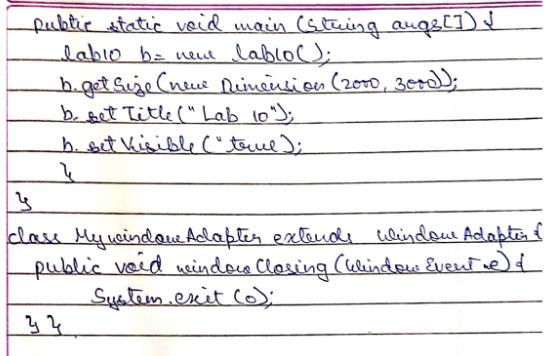 public static void main (String args[]) {
lab10 b = new lab10();
b.getSize(new Dimension (2000, 3000));
b. set Title ("Lab 10");
b. set Visible ("true);
}
}
class MywindowAdapter extends Window Adapter {
public void windowClosing (Window Event e) {
System.exit (0);
} }